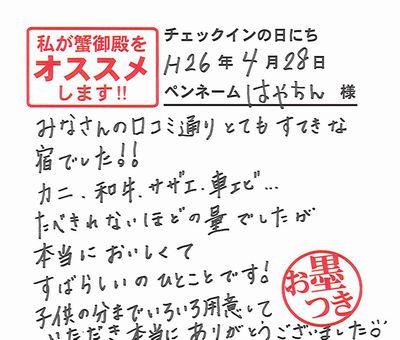 私が蟹御殿を
オススメ
します!!
チェックインの日にち
H26年4月28日
ペンネーム はやちん 様
みなさんの口コミ通りとてもすてきな
宿でした!!
カニ、和牛、サザエ、車エビ…
たべきれないほどの量でしたが
本当においしくて
すばらしいのひとことです!
子供の分までいろいろ用意して
いただき本当にありがとうございました
お墨つき